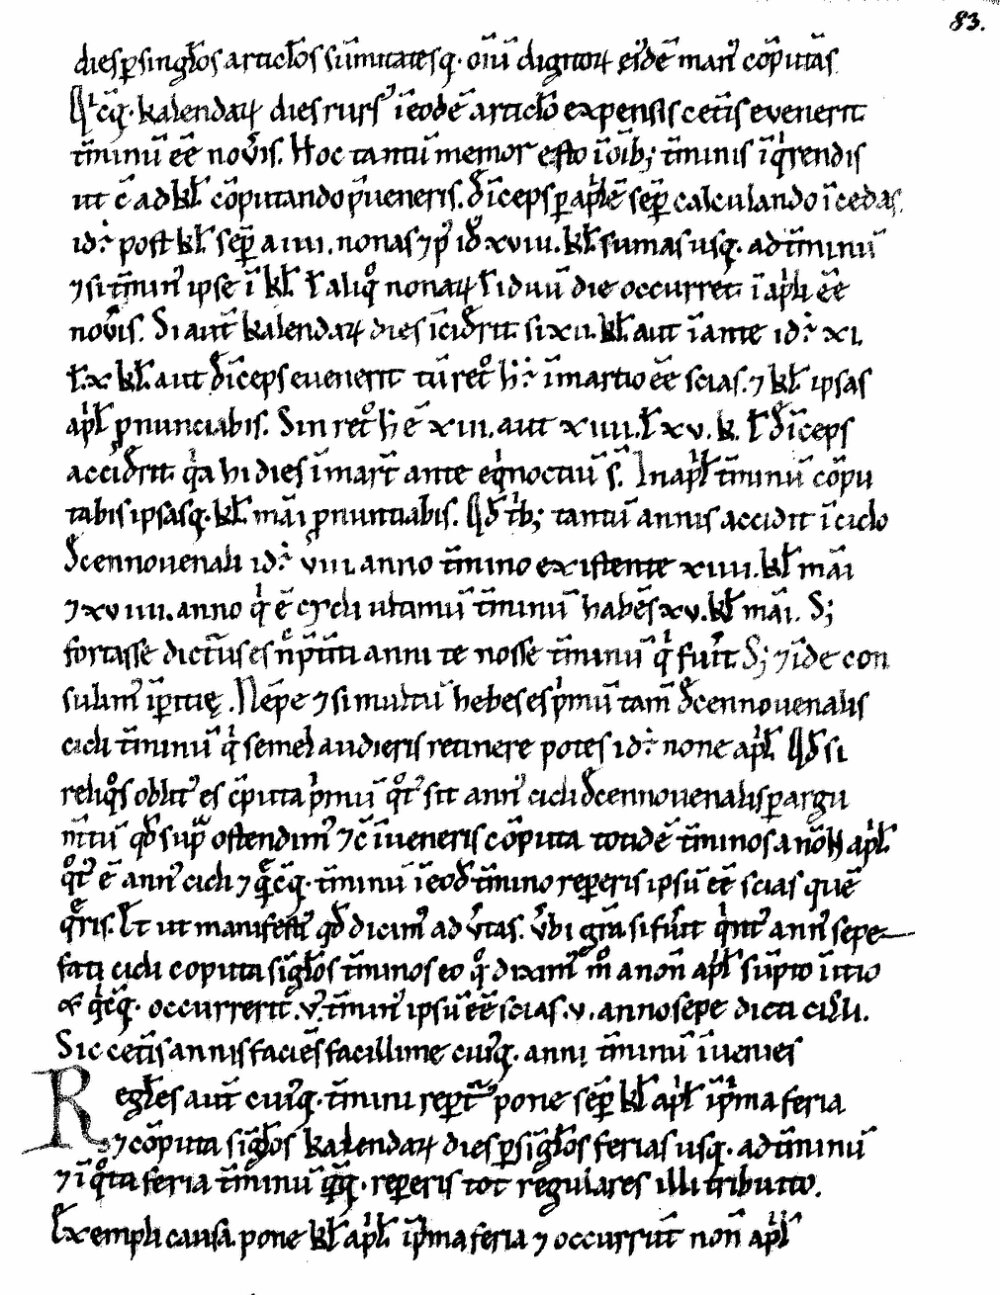 83.
dies ꝑ singłos articłos sūmitatesq· oīū digitoꝝ eiꝰdē manꝰ cōputās
Qͥcq̄· kalendaꝝ dies rursꝰ ī eodē articło expensis cet̄is evenerit
t̄minū ēē nov̾is. Hoc tantū memor esto ī oīb; t̄minis īqͥrendis
ut c̄ ad kł cōputando ꝑveneris. đīceps ꝑ apͥlē sēꝑ calculando īcedas.
id· post kł sēꝑ a iiii. nonas ⁊ pꝰ iđ xviii. kł sumas usq· ad t̄minū
⁊ si t̄minꝰ ipse ī kł ł aliqͦ nonaꝝ ł iduū die occurret ī apͥli ēē
nov̾is. Si aut̄ kalendaꝝ dies īciđrit si xii. kł aut īante id· xi.
ł x kł aut đīceps evenerit tū retͦ h· ī martio ēē scias. ⁊ kł ipsas
apͥł ꝓnunciabis. Sin retͦ h ē xiii. aut xiiii. ł xv. k. ł đīceps
acciđrit qͥa hi dies ī mart̄ ante eqͥnoctiū s̄. In apͥł t̄minū cōpu
tabis ipsasq· kł māi ꝓnuntiabis. Qđ tͥb; tantū annis accidit ī ciclo
đcennovenali id· viii. anno t̄mino existente xiiii. kł māi
⁊ xviiii. anno qͥ ē cycli ultimū t̄minū habēs xv. kł māi. S;
fortasse dict̄us es n̄ ꝑtiti anni te nosse t̄minū qͥ fuit S; ⁊ īde con
sulimꝰ īꝑitię. Nēpe ⁊ si multū hebes es pͥmū tam̄ đcennovenalis
cicli t̄minū qͥ semel audieris retinere potes id· none apͥł Qđ si
reliqͦs oblitꝰ es c̄puta pͥmū qͦtꝰ sit annꝰ cicli đcennovenalis ꝑ argu
m̄tū qđ supͣ ostendimꝰ ⁊ c̄ īveneris cōputa totidē t̄minos a nōn apͥł
qͦtꝰ ē annꝰ cicli ⁊ qͤcq̄· t̄minū ī eođ t̄mino reꝑeris ipsū ēē scias quē
qͤris. Et ut manifestiꝰ qđ dicimꝰ advtas. v̾bi grā si fu̾it qͥntꝰ annꝰ sepe
fati cicli coputa sīgłos t̄minos eo qͦ diximꝰ mͦ a non̄ apͥł sūpto initio
& qͥcq̄· occurrerit .v. t̄minꝰ ipsū ēē scias .v. anno sepe dicti cicli.
Sic cet̄is annis faciēs facillime cuiꝰq· anni t̄minū īvenies
Regłes aut̄ cuiꝰq· t̄mini repertuꝰ pone sēꝑ kł apͥł ī pͥma feria
⁊ cōputa sīgłos kalendaꝝ dies ꝑ sīgłos ferias usq· ad t̄minū
⁊ ī qͦta feria t̄minū qͣq· reꝑeris tot regulares illi tribuito.
Exempli causa pone kł apͥł ī pͥma feria ⁊ occurrūt non̄ apͥł